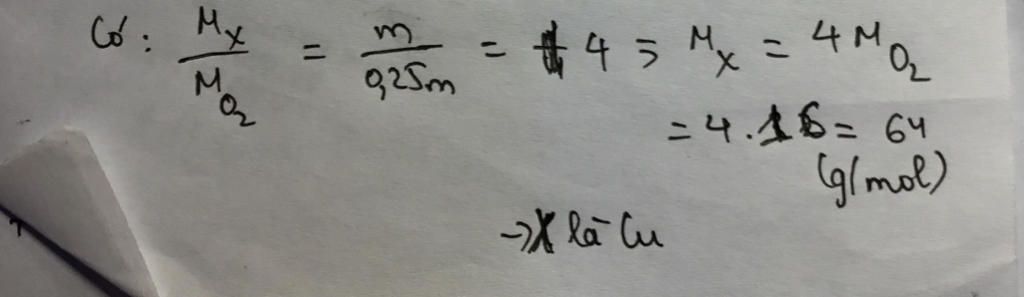 Có: M_X / M_O₂ = m / 0,25m = 4 ⇒ M_X = 4 M_O₂
= 4 . 16 = 64
(g/mol)
→ X là Cu